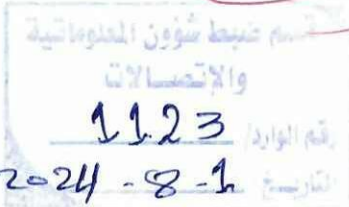 قسم ضبط شؤون المعلوماتية
والإتصالات
رقم الوارد/ 1123
التاريخ 2024 - 8 - 1